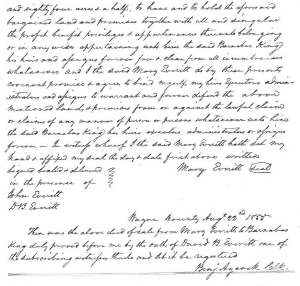 and eighty four acres & a half, to have and to hold the aforesaid
bargained land and premises together with all and singular
the profit benefit privileges & appurtenances thereunto belonging
or in any wise appertaining unto him the said Barnabas King
his heirs and assigns forever free & clear from all incumbrances
whatsoever And I the said Mary Everitt do by these presents
covenant promise & agree to bind myself my heirs Executors admin-
istrators and assigns to warrant and forever defend the above
mentioned lands & premises from or against the lawful claim
or claims of any manner of person or persons whatsoever unto him
the said Barnabas King his heirs executors administrators or assigns
forever — In witness whereof I the said Mary Everitt hath set my
hand & affixed my seal the day & date first above written
Signed Sealed & delivered
in the presence of
Mary Everitt Seal
John Everitt
D B. Everitt
Wayne County Augt 22nd 1855
Then was the above deed of sale from Mary Everitt to Barnabas
King duly proved before me by the oath of David B Everitt one of
the subscribing witnesses thereto Let it be registered
Benj Aycock Clk.